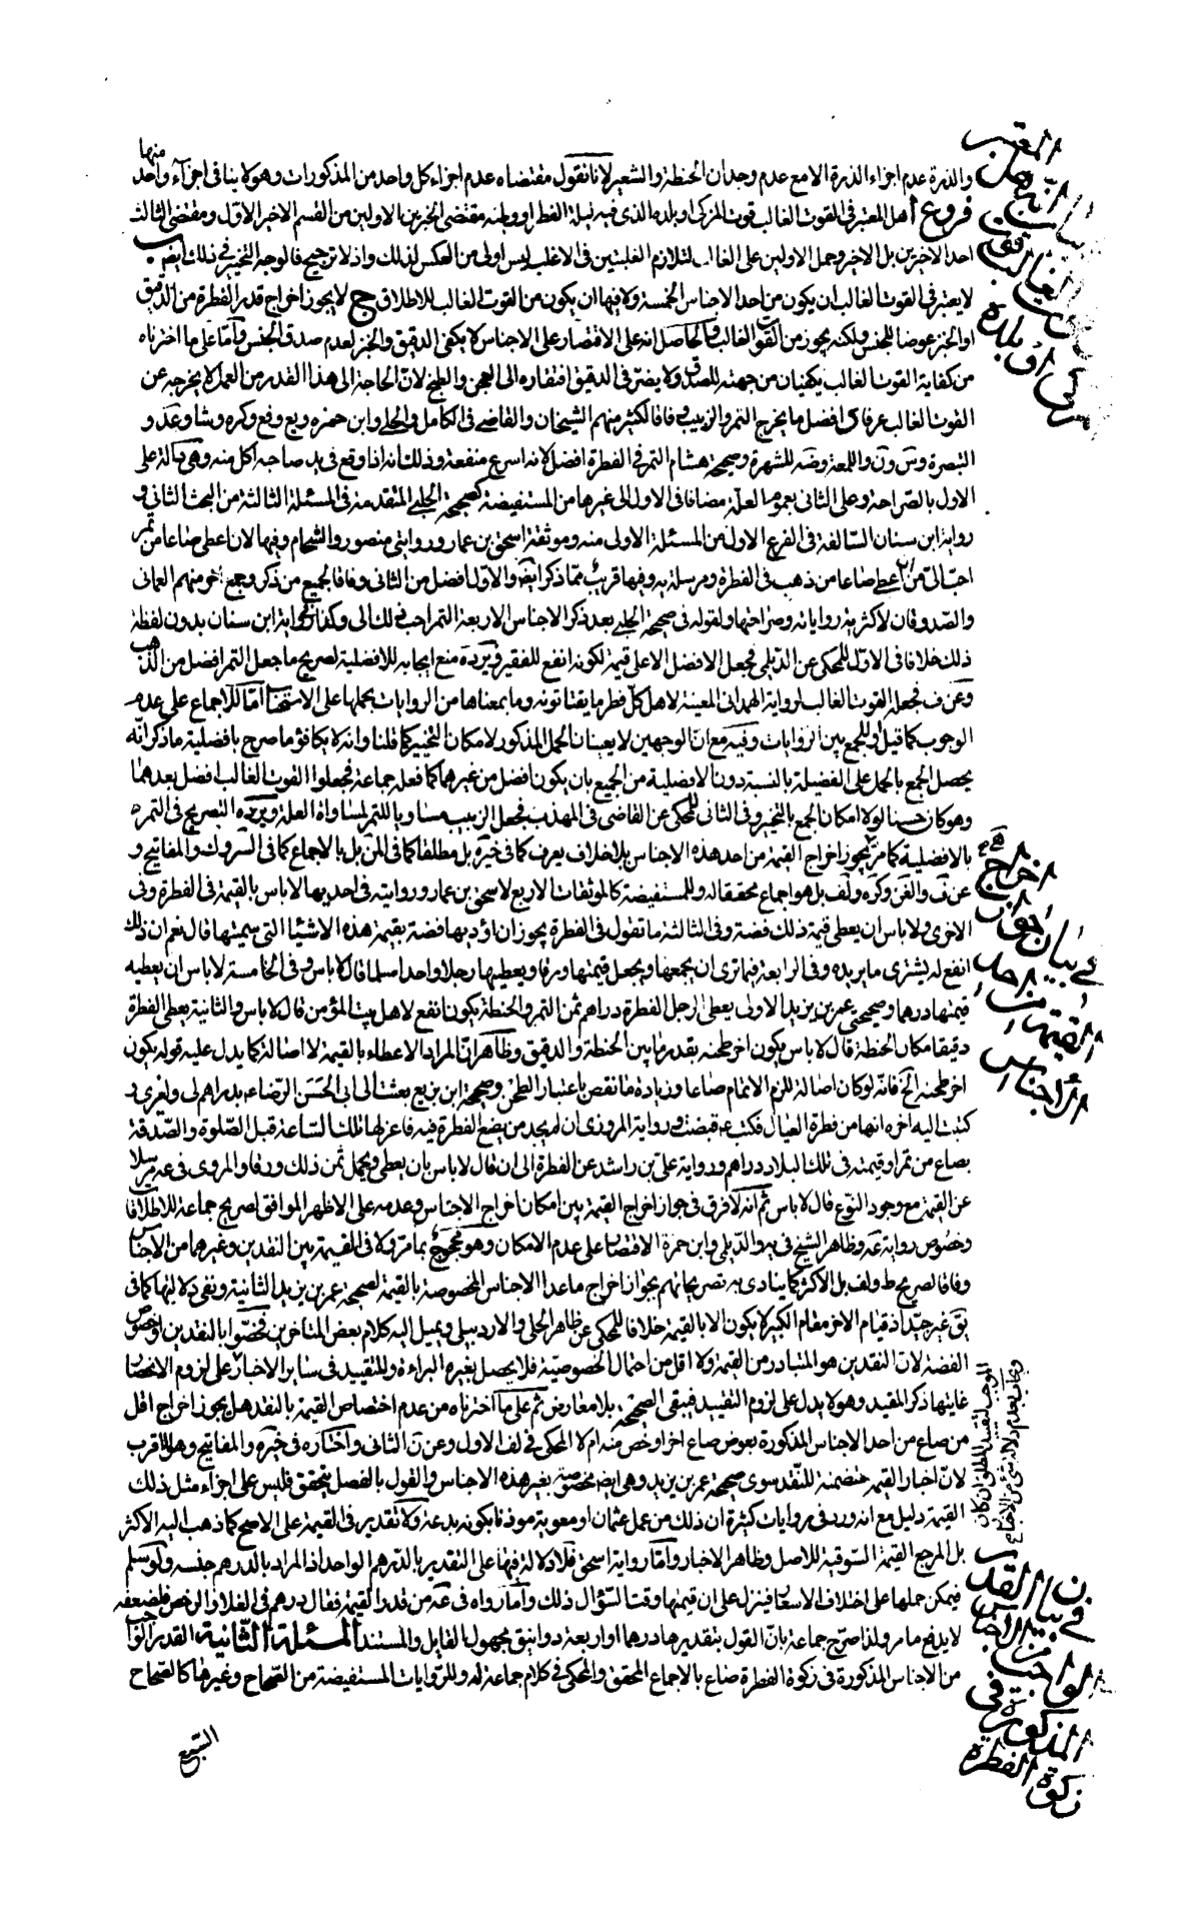 والذرة عدم اجزاء الذرة الا مع عدم وجدان الحنطة والشعير لانا نقول مقتضاه عدم اجزاء كل واحد من المذكورات وهو لا ينافى اجزآء واحد منها
فروع آ هل المعتبر فى القوت الغالب قوت المزكى او بلده الذى فيه ليلة الفطر او وطنه مقتضى الخبرين الاولين من القسم الاخير الاول ومقتضى الثالث
احد الاخرين بل الاخير وحمل الاولين على الغالب لتلازم الغلبتين فى الاغلب ليس اولى من العكس لذلك واذ لا ترجيح فالوجه التخيير فى ذلك ايضا ب
لا يعتبر فى القوت الغالب ان يكون من احد الاجناس الخمسة ولا فيها ان يكون من القوت الغالب للاطلاق ج لا يجوز اخراج قدر الفطرة من الدقيق
او الخبز عوضا للجنس ولكنه يجوز من القوت الغالب والحاصل انه على الاقتصار على الاجناس لا يكفى الدقيق والخبز لعدم صدق الجنس وامّا على ما اخترناه
من كفاية القوت الغالب يكفيان من جهته للصدق ولا يضرّ فى الدقيق افتقاره الى العجن والطبخ لانّ الحاجة الى هذا القدر من العمل لا يخرجه عن
القوت الغالب عرفا د افضل ما يخرج التمر والزبيب وفاقا لكثير منهم الشيخان والقاضى فى الكامل والحلى وابن حمزة ويع وفع وكره وشاد وعد و
التبصرة وس ون واللمعة وضه للشهرة وصحيحة هشام التمر فى الفطرة افضل لانه اسرع منفعة وذلك انه اذا وقع فى يد صاحبه اكل منه وهى دالة على
الاول بالصراحة وعلى الثانى بعموم العلة مضافا فى الاول الى غيرها من المستفيضة كصحيحة الحلبى المتقدمة فى المسئلة الثالثة من البحث الثانى و
رواية ابن سنان السالفة فى الفرع الاول من المسئلة الاولى منه وموثقة اسحق بن عمار وروايتى منصور والشحام وفيها لان اعطى صاعا من تمر
احبّ الىّ من ان اعطى صاعا من ذهب فى الفطرة ومرسلة يه وفيها قريب ممّا ذكر ايضا والاول افضل من الثانى وفاقا لجميع من ذكر وجمع اخر منهم العمانى
والصّدوقان لاكثرية رواياته وصراحتها ولقوله فى صحيحة الحلبى بعد ذكر الاجناس الاربعة التمر احب ذلك الى وكذا فى رواية ابن سنان بدون لفظة
ذلك خلافا فى الاول للمحكى عن الديلمى فجعل الافضل الاعلى قيمة لكونه انفع للفقير ويردّه منع ايجابه للافضلية لصريح ما جعل التمر افضل من الذهب
وعن ف فجعله القوت الغالب لرواية الهمدانى المعينة لاهل كلّ قطر ما يقتاتونه وما بمعناها من الروايات بحملها على الاستحباب اما للاجماع على عدم
الوجوب كما قيل او للجمع بين الروايات وفيه مع انّ الوجهين لا يعينان الحمل المذكور لامكان التخيير كما قلنا وانه لا يكافؤ ما صرح بافضلية ما ذكر انّه
يحصل الجمع بالحمل على الفضيلة بالنسبة دون الافضلية من الجميع بان يكون افضل من غيرهما كما فعله جماعة فجعلوا القوت الغالب افضل بعدهما
وهو كان حسنا لولا امكان الجمع بالتخيير وفى الثانى للمحكى عن القاضى فى المهذب فجعل الزبيب مساويا للتمر لمساواة العلة ويردّه التصريح فى التمر
بالافضلية كما مرّ ه يجوز اخراج القيمة من احد هذه الاجناس بلا خلاف يعرف كما فى خيره بل مطلقا كما فى المن بل بالاجماع كما فى السروك والمفاتيح و
عن ف والغن وكره ولف بل هو اجماع محققا له وللمستفيضة كالموثقات الاربع لاسحق بن عمار وروايته فى احديها لا باس بالقيمة فى الفطرة وفى
الاخرى ولا باس ان يعطى قيمة ذلك فضة وفى الثالثة ما تقول فى الفطرة يجوز ان اؤديها فضة بقيمة هذه الاشيآء التى سميتها قال نعم ان ذلك
انفع له يشترى ما يريده وفى الرابعة فيما ترى ان يجمعها ويجعل قيمتها ورقا ويعطيها رجلا واحدا مسلما قال لا باس وفى الخامسة لا باس ان يعطيه
قيمتها درهما وصحيحتى عمر بن يزيد الاولى يعطى الرجل الفطرة دراهم ثمن التمر والحنطة يكون انفع لاهل بيت المؤمن قال لا باس والثانية يعطى الفطرة
دقيقا مكان الحنطة قال لا باس يكون اجر طحنه بقدر ما بين الحنطة والدقيق وظاهر انّ المراد الاعطاء بالقيمة لا اصالة كما يدل عليه قوله يكون
اجر طحنه الخ فانّه لو كان اصالة للزم الاتمام صاعا وزيادة ما نقص باعتبار الطحن وصحيحة ابن بزيع بعثت الى ابى الحسن الرضا ع بدراهم لى ولغيرى و
كتبت اليه اخبره انها من فطرة العيال فكتب ع قبضت ورواية المروزى ان لم يجد من يضع الفطرة فيه فاعزلها تلك الساعة قبل الصلوة والصّدقة
بصاع من تمر او قيمته فى تلك البلاد دراهم ورواية على بن راشد عن الفطرة الى ان قال لا باس بان يعطى ويحمل ثمن ذلك ورقا والمروى فى عه مرسلا
عن القيمة مع وجود النّوع قال لا باس ثم انّه لا فرق فى جواز اخراج القيمة بين امكان اخراج الاجناس وعدمه على الاظهر الموافق لصريح جماعة للاطلاقات
وخصوص رواية عه وظاهر الشيخ فى يه والديلمى وابن حمزة الاقتصار على عدم الامكان وهو محجوج بما مرّ ولا فى القيمة بين النقدين وغيرهما من الاجناس
وفاقا لصريح ط ولف بل الاكثر كما ينادى به تصريحاتهم بجواز اخراج ما عدا الاجناس المخصوصة بالقيمة لصحيحة عمر بن يزيد الثانية ونفى دلالتها كما فى
يق غير جيّد اذ قيام الاجر مقام الكسر لا يكون الا بالقيمة خلافا للمحكى عن ظاهر الحلى والاردبيلى ويميل اليه كلام بعض المتاخرين فخصّوا بالنقدين او خصوص
الفضة لانّ النقدين هو المتبادر من القيمة ولا اقل من احتمال الخصوصيّة فلا يحصل بغيره البراءة وللتقييد فى ساير الاخبار على لزوم الانحصار
غايتها ذكر المقيد وهو لا يدل على لزوم التقييد فيبقى الصحيحة بلا معارض ثم على ما اخترناه من عدم اختصاص القيمة بالنقد هل يجوز اخراج اقل
من صاع من احد الاجناس المذكورة بعوض صاع اخر ارخص منه ام لا المحكى فى لف الاول وعن ن الثانى واختاره فى خيره والمفاتيح وهو الاقرب
لانّ اخبار القيمة متضمنة للنقد سوى صحيحة عمر بن يزيد وهى ايضا مخصوصة بغير هذه الاجناس والقول بالفصل يتحقق فليس على اجزاء مثل ذلك
القيمة دليل مع انه ورد فى روايات كثيرة ان ذلك من عمل عثمان او معوية موذنا بكونه بدعة ولا تقدير فى القيمة على الاصح كما ذهب اليه الاكثر
بل المرجع القيمة السّوقية للاصل وظاهر الاخبار وامّا رواية اسحق فلا دلالة فيها على التقدير بالدّرهم الواحد اذ المراد بالدرهم جنسه ولو سلم
فيمكن حملها على اختلاف الاسعار فينزل على ان قيمتها وقت السّؤال ذلك وامّا رواه فى عه من قدر القيمة فقال درهم فى الغلاء والرخص فلضعفه
لا يدفع ما مر ولذا صرّح جماعة بانّ القول بتقديرها درهما او اربعة دوانيق مجهول القايل والمستند المسئلة الثّانية القدير الواجب
من الاجناس المذكورة فى زكوة الفطرة صاع بالاجماع المحقق والمحكى فى كلام جماعة له وللرّوايات المستفيضة من الصّحاح وغيرها كالصّحاح
السّبع
المعتبر
فى بيان جواز اخراج
القيمة من احد
الاجناس
وعجاب بعدم دلالة شئ من الاخبار
الموجب لتقييد المطلق ان كان
فى بيان القدر
الواجب من الاجناس
المذكورة فى
زكوة الفطرة